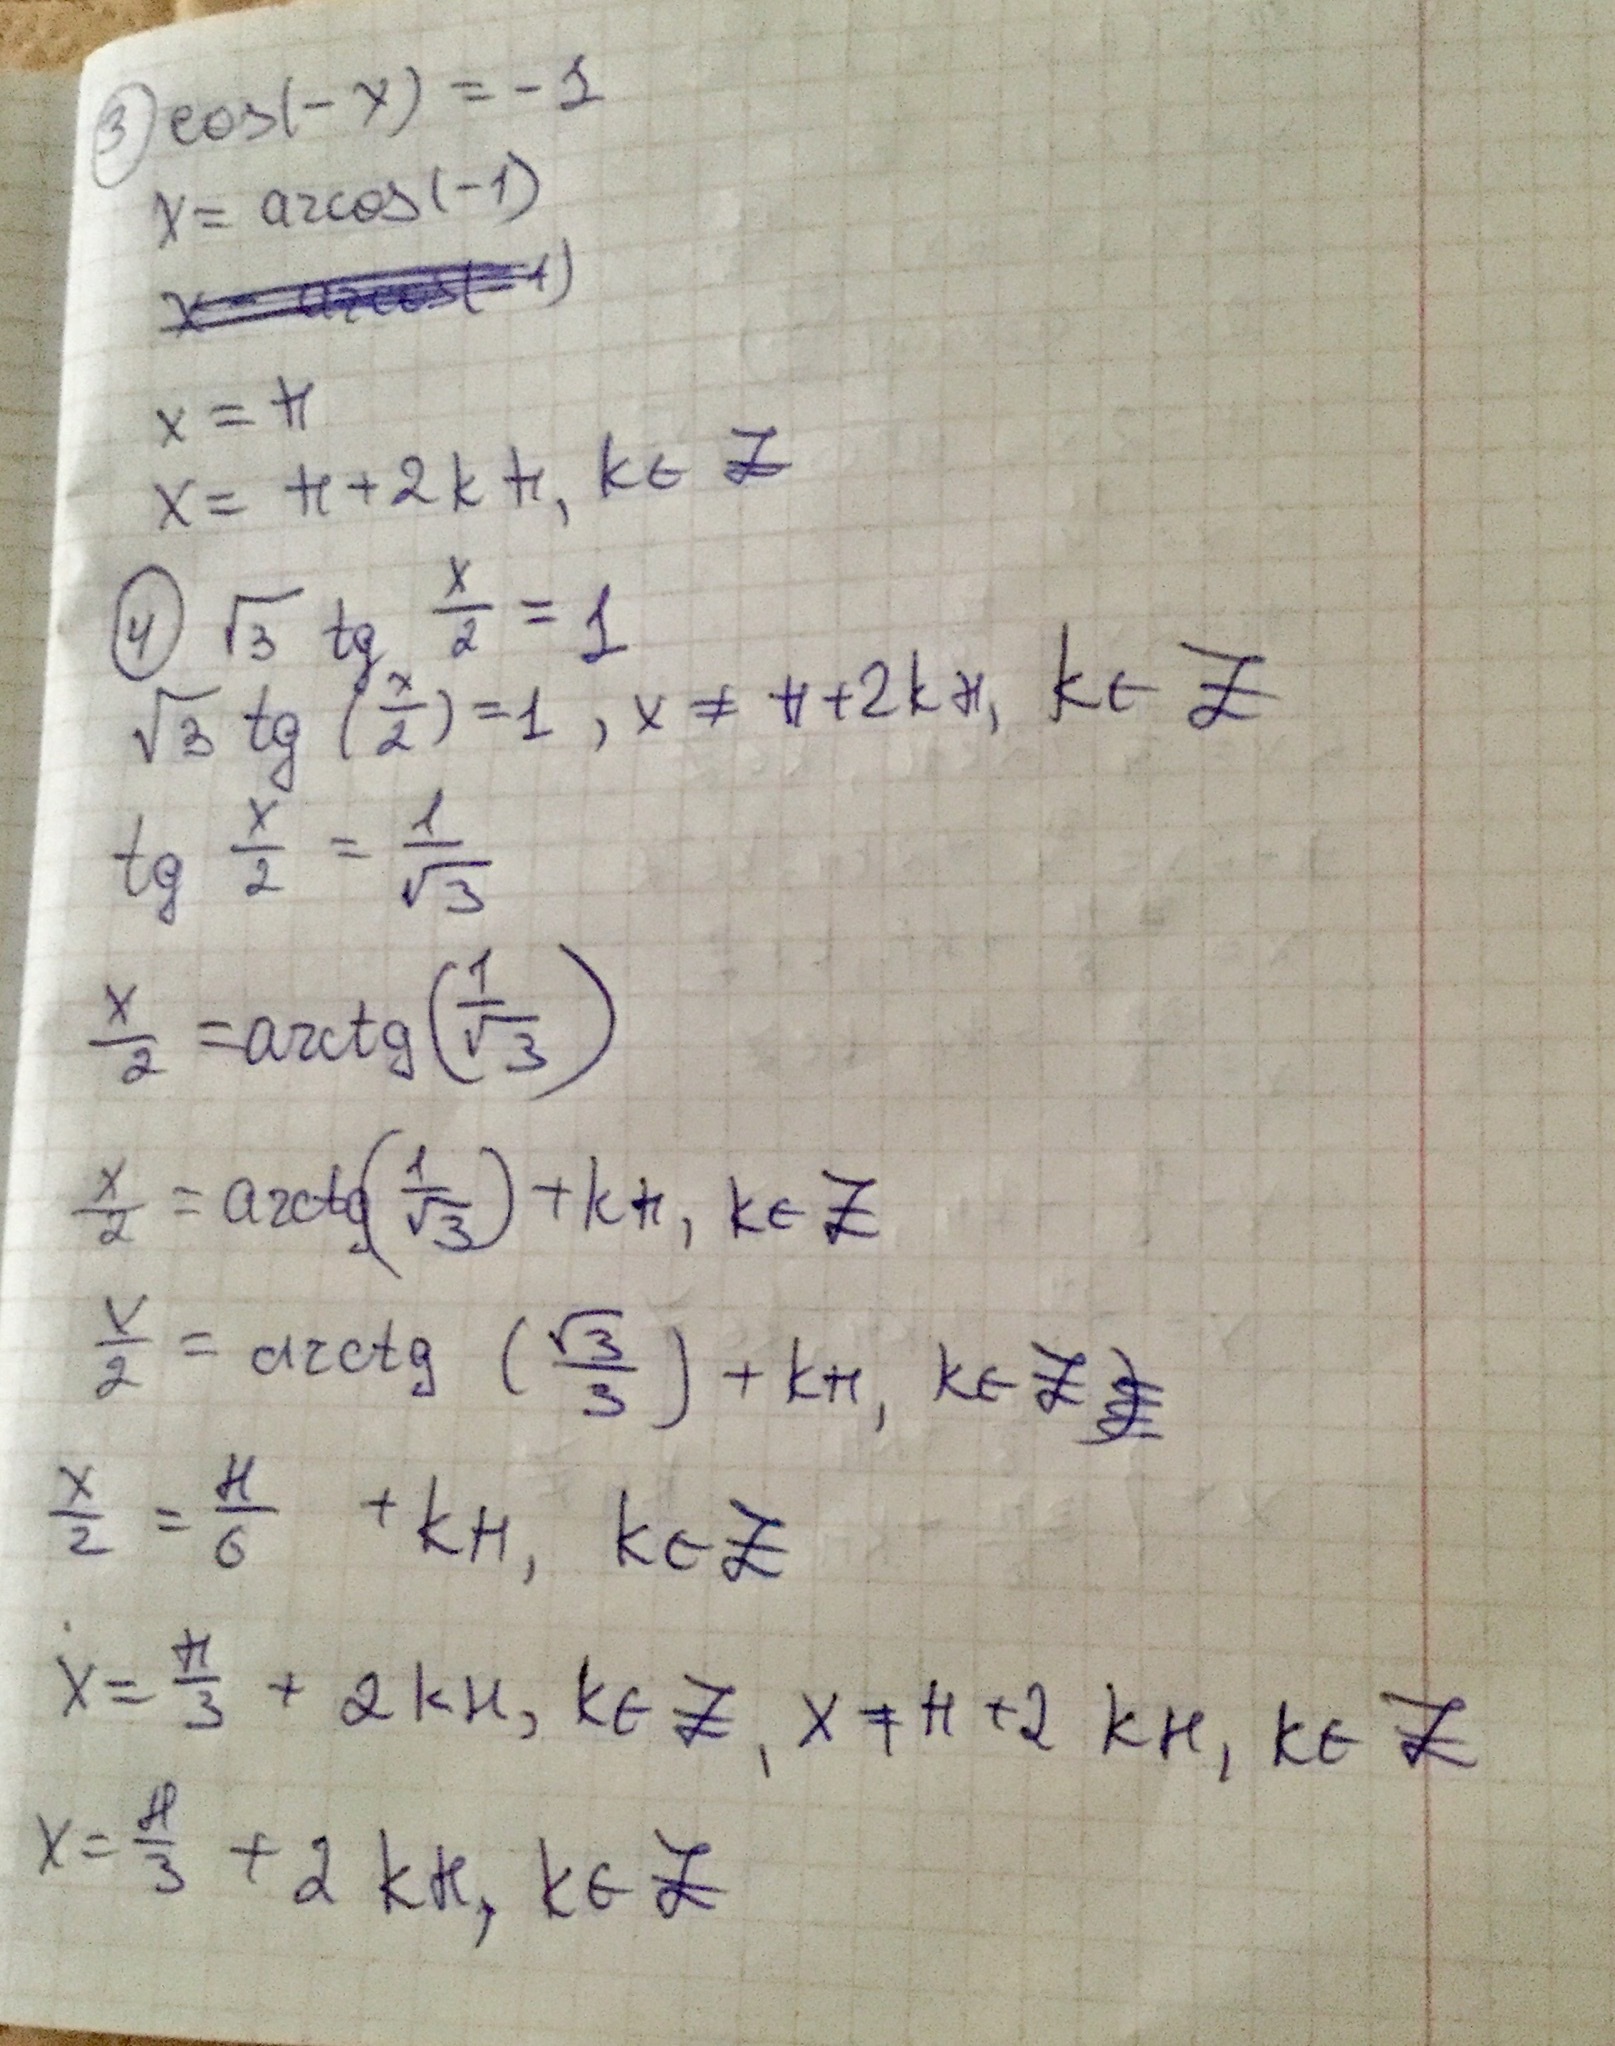 ③ cos(-x) = -1
x = arcos(-1)
x = arcos(-1)
x = π
x = π + 2kπ, k∈Z
④ √3 tg x/2 = 1
√3 tg (x/2) = 1, x ≠ π + 2kπ, k∈Z
tg x/2 = 1/√3
x/2 = arctg(1/√3)
x/2 = arctg(1/√3) + kπ, k∈Z
x/2 = arctg (√3/3) + kπ, k∈Z
x/2 = π/6 + kπ, k∈Z
x = π/3 + 2kπ, k∈Z, x ≠ π + 2kπ, k∈Z
x = π/3 + 2kπ, k∈Z